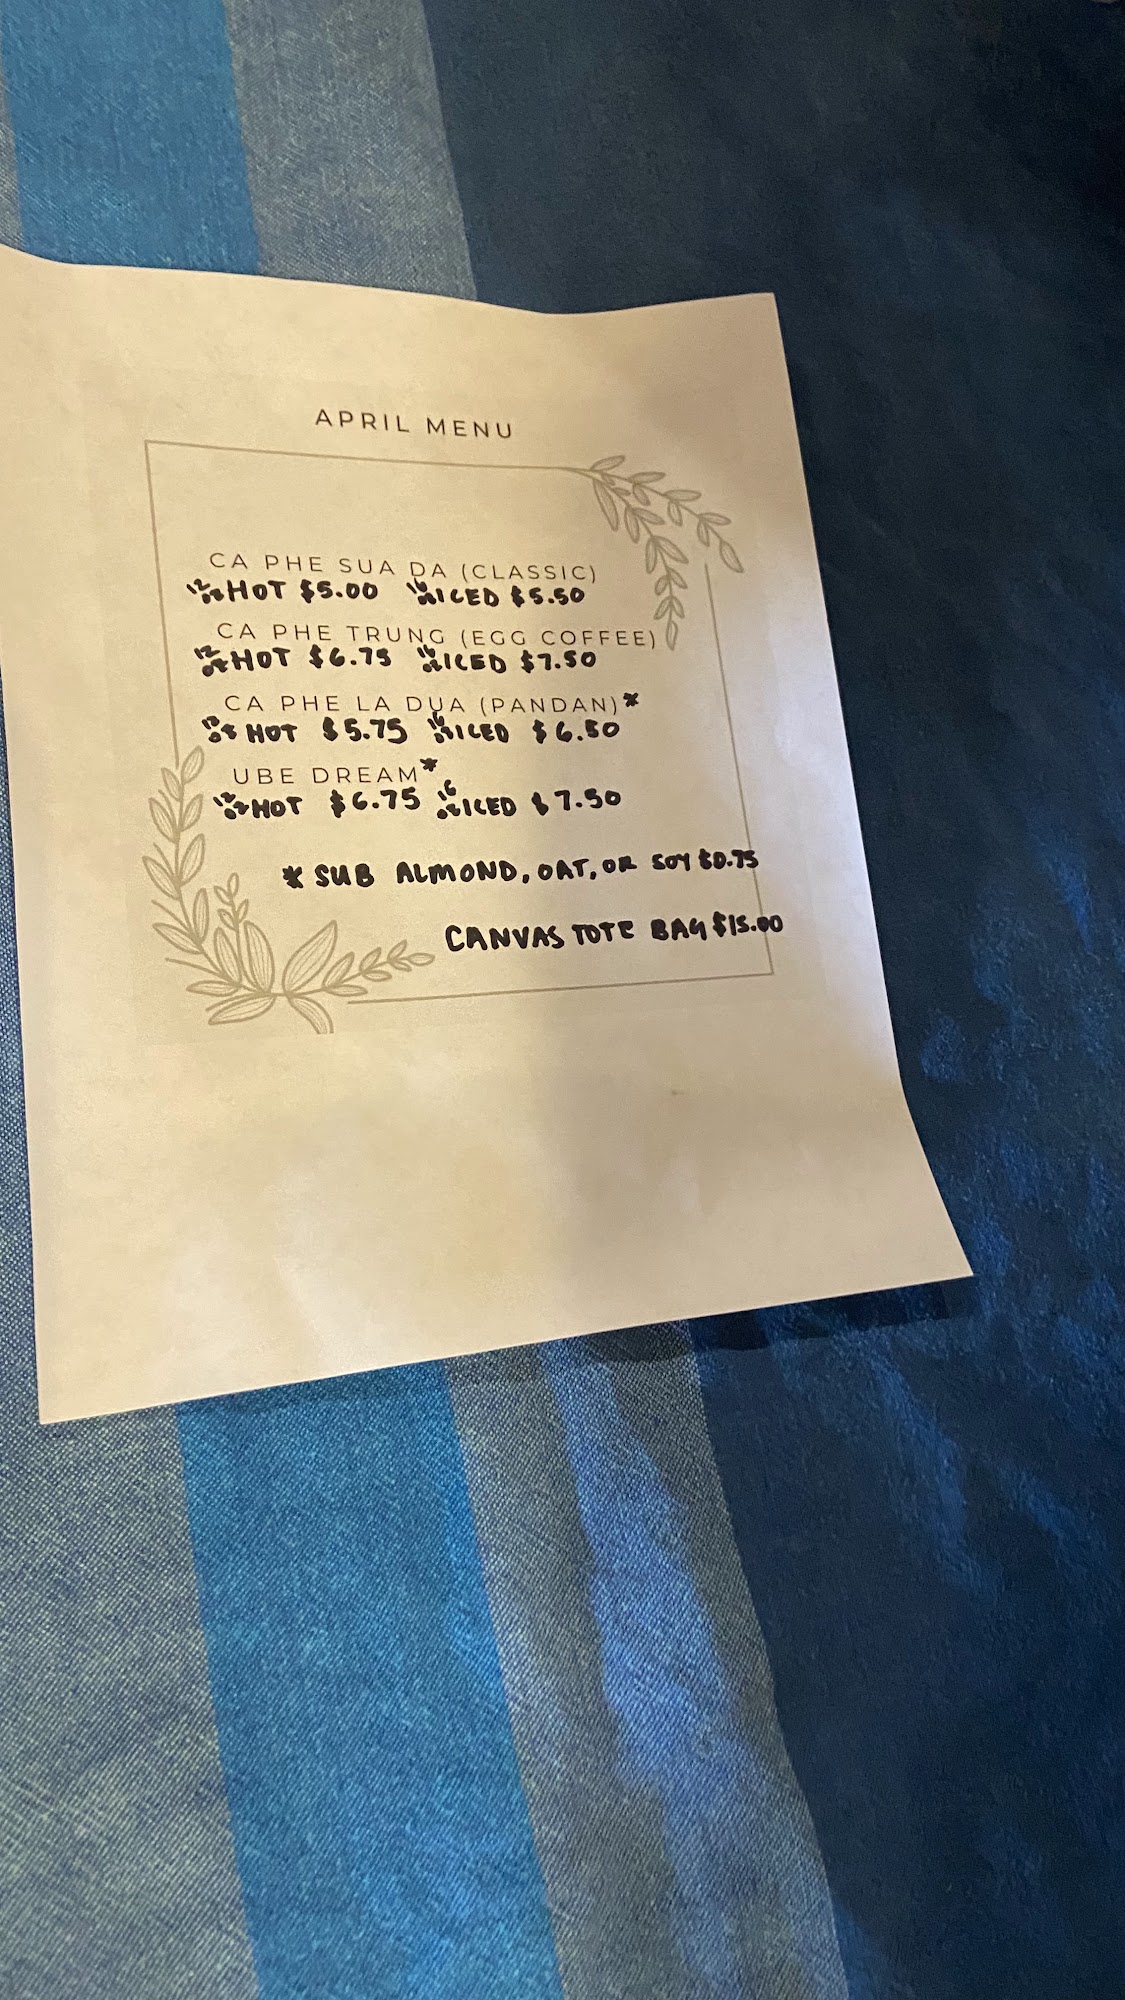 APRIL MENU
CA PHE SUA DA (CLASSIC)
12 oz HOT $5.00 16 oz ICED $5.50
CA PHE TRUNG (EGG COFFEE)
12 oz HOT $6.75 16 oz ICED $7.50
CA PHE LA DUA (PANDAN)*
HOT $5.75 16 oz ICED $6.50
UBE DREAM*
12 oz HOT $6.75 16 oz ICED $7.50
* SUB ALMOND, OAT, OR SOY $0.75
CANVAS TOTE BAG $15.00